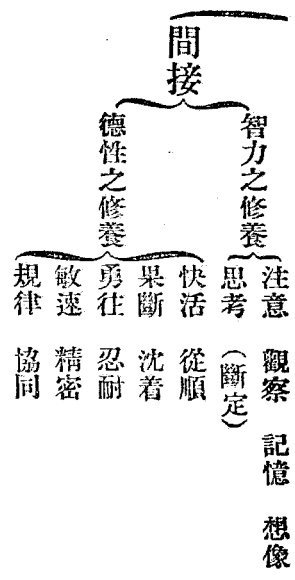 間接
智力之修養
注意 觀察 記憶 想像
思考 (斷定)
德性之修養
快活 從順
果斷 沈着
勇往 忍耐
敏速 精密
規律 協同